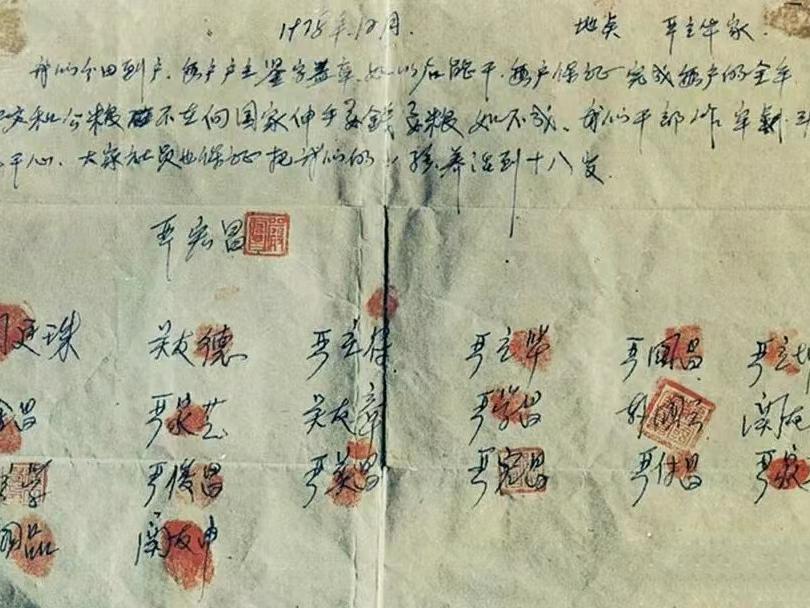 1978年12月. 地点 严立华家.
我们分田到户.每户户主签字盖章.如以后能干.每户保证完成每户的全年
交和公粮 不在向国家伸手要钱要粮 如不成、我们干部作牢刹
干心、大家社员也保证把我们的小孩、养活到十八岁.
严宏昌
廷珠 关友德 严立符 严立华 严国昌 严立坤
金昌 严家芝 关友章 严学昌 韩国云 关友
学 严俊昌 严美昌 严宏昌 严付昌 严家
国品 关友申